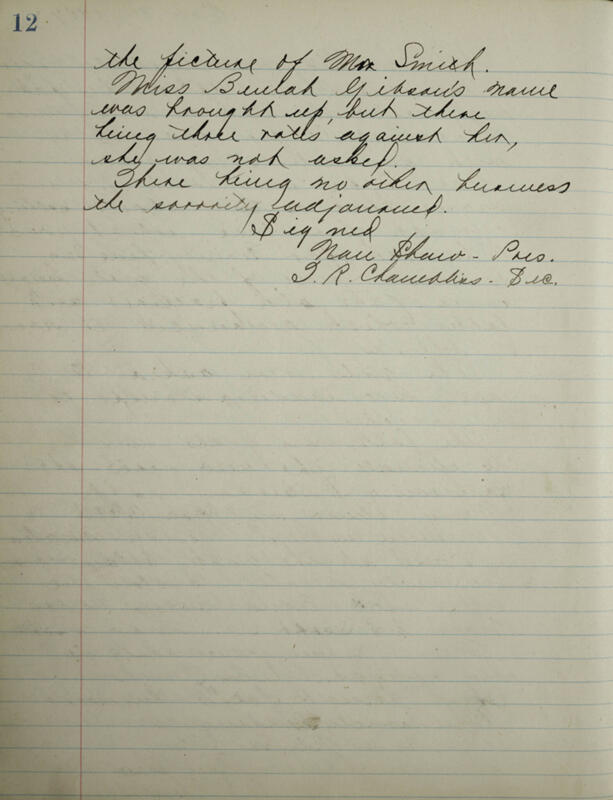 12
the picture of Mr Smith.
Miss Beulah Gibson's name
was brought up, but there
being three votes against her,
she was not asked.
There being no other business
the sorority adjourned.
Signed
Nan Shaw - Pres.
I. R. Chambliss - Sec.